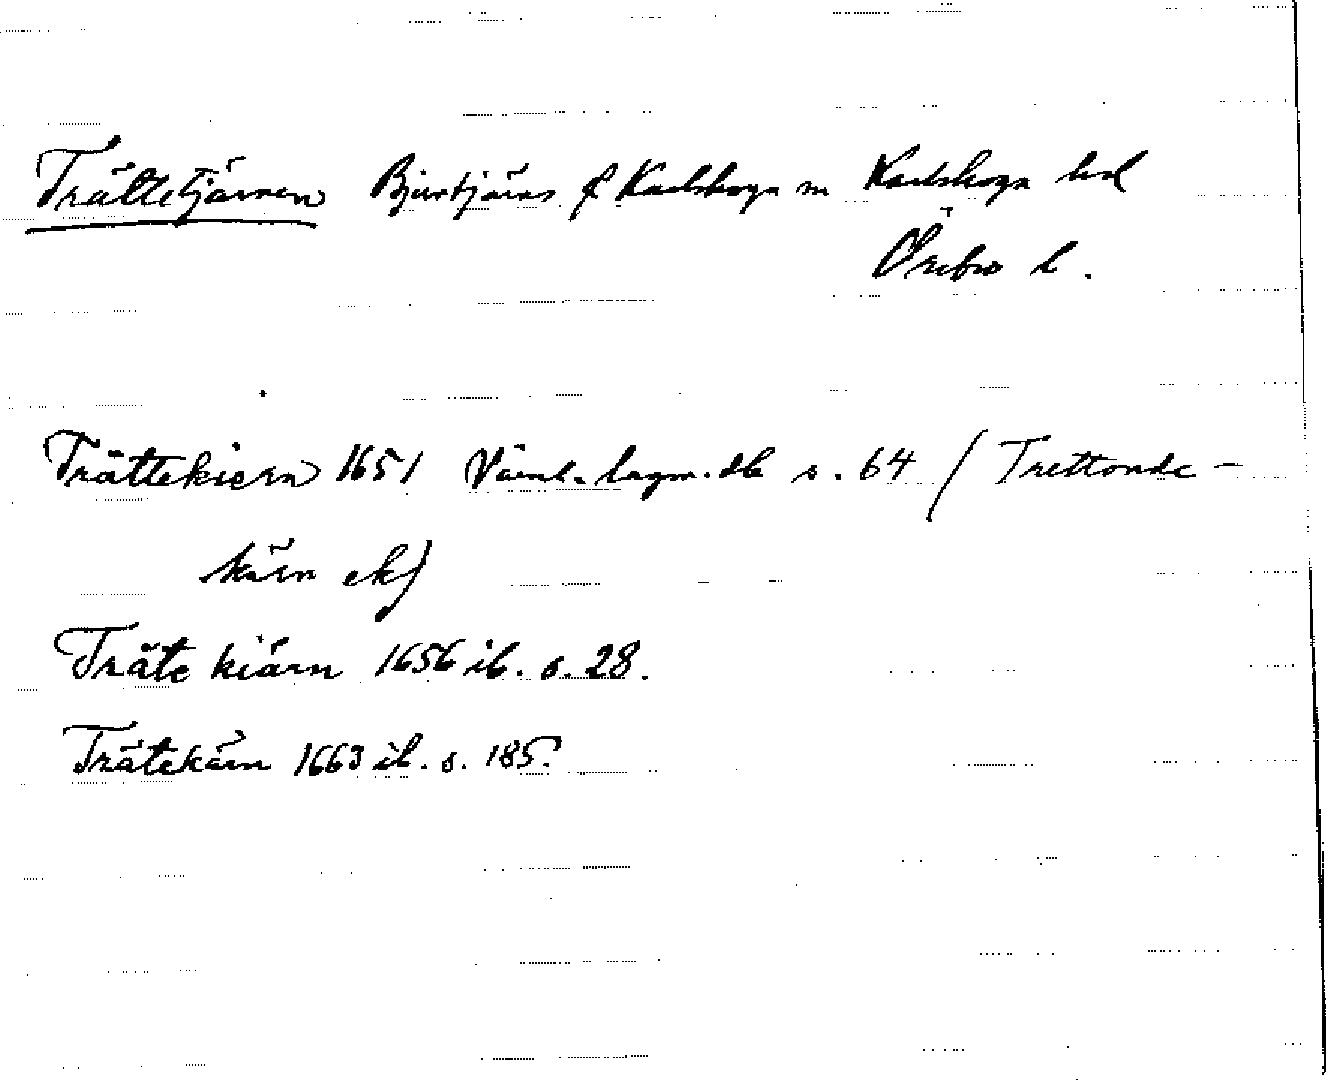 Trättetjärnen Bjurtjärns f Karlskoga m Karlskoga hd
Örebro l.
Trättekiern 1651 Värml. lagm. db s. 64 (Trettonde-
kärn ek)
Träte kiärn 1656 ib. s. 28.
Trätekärn 1663 ib. s. 185.